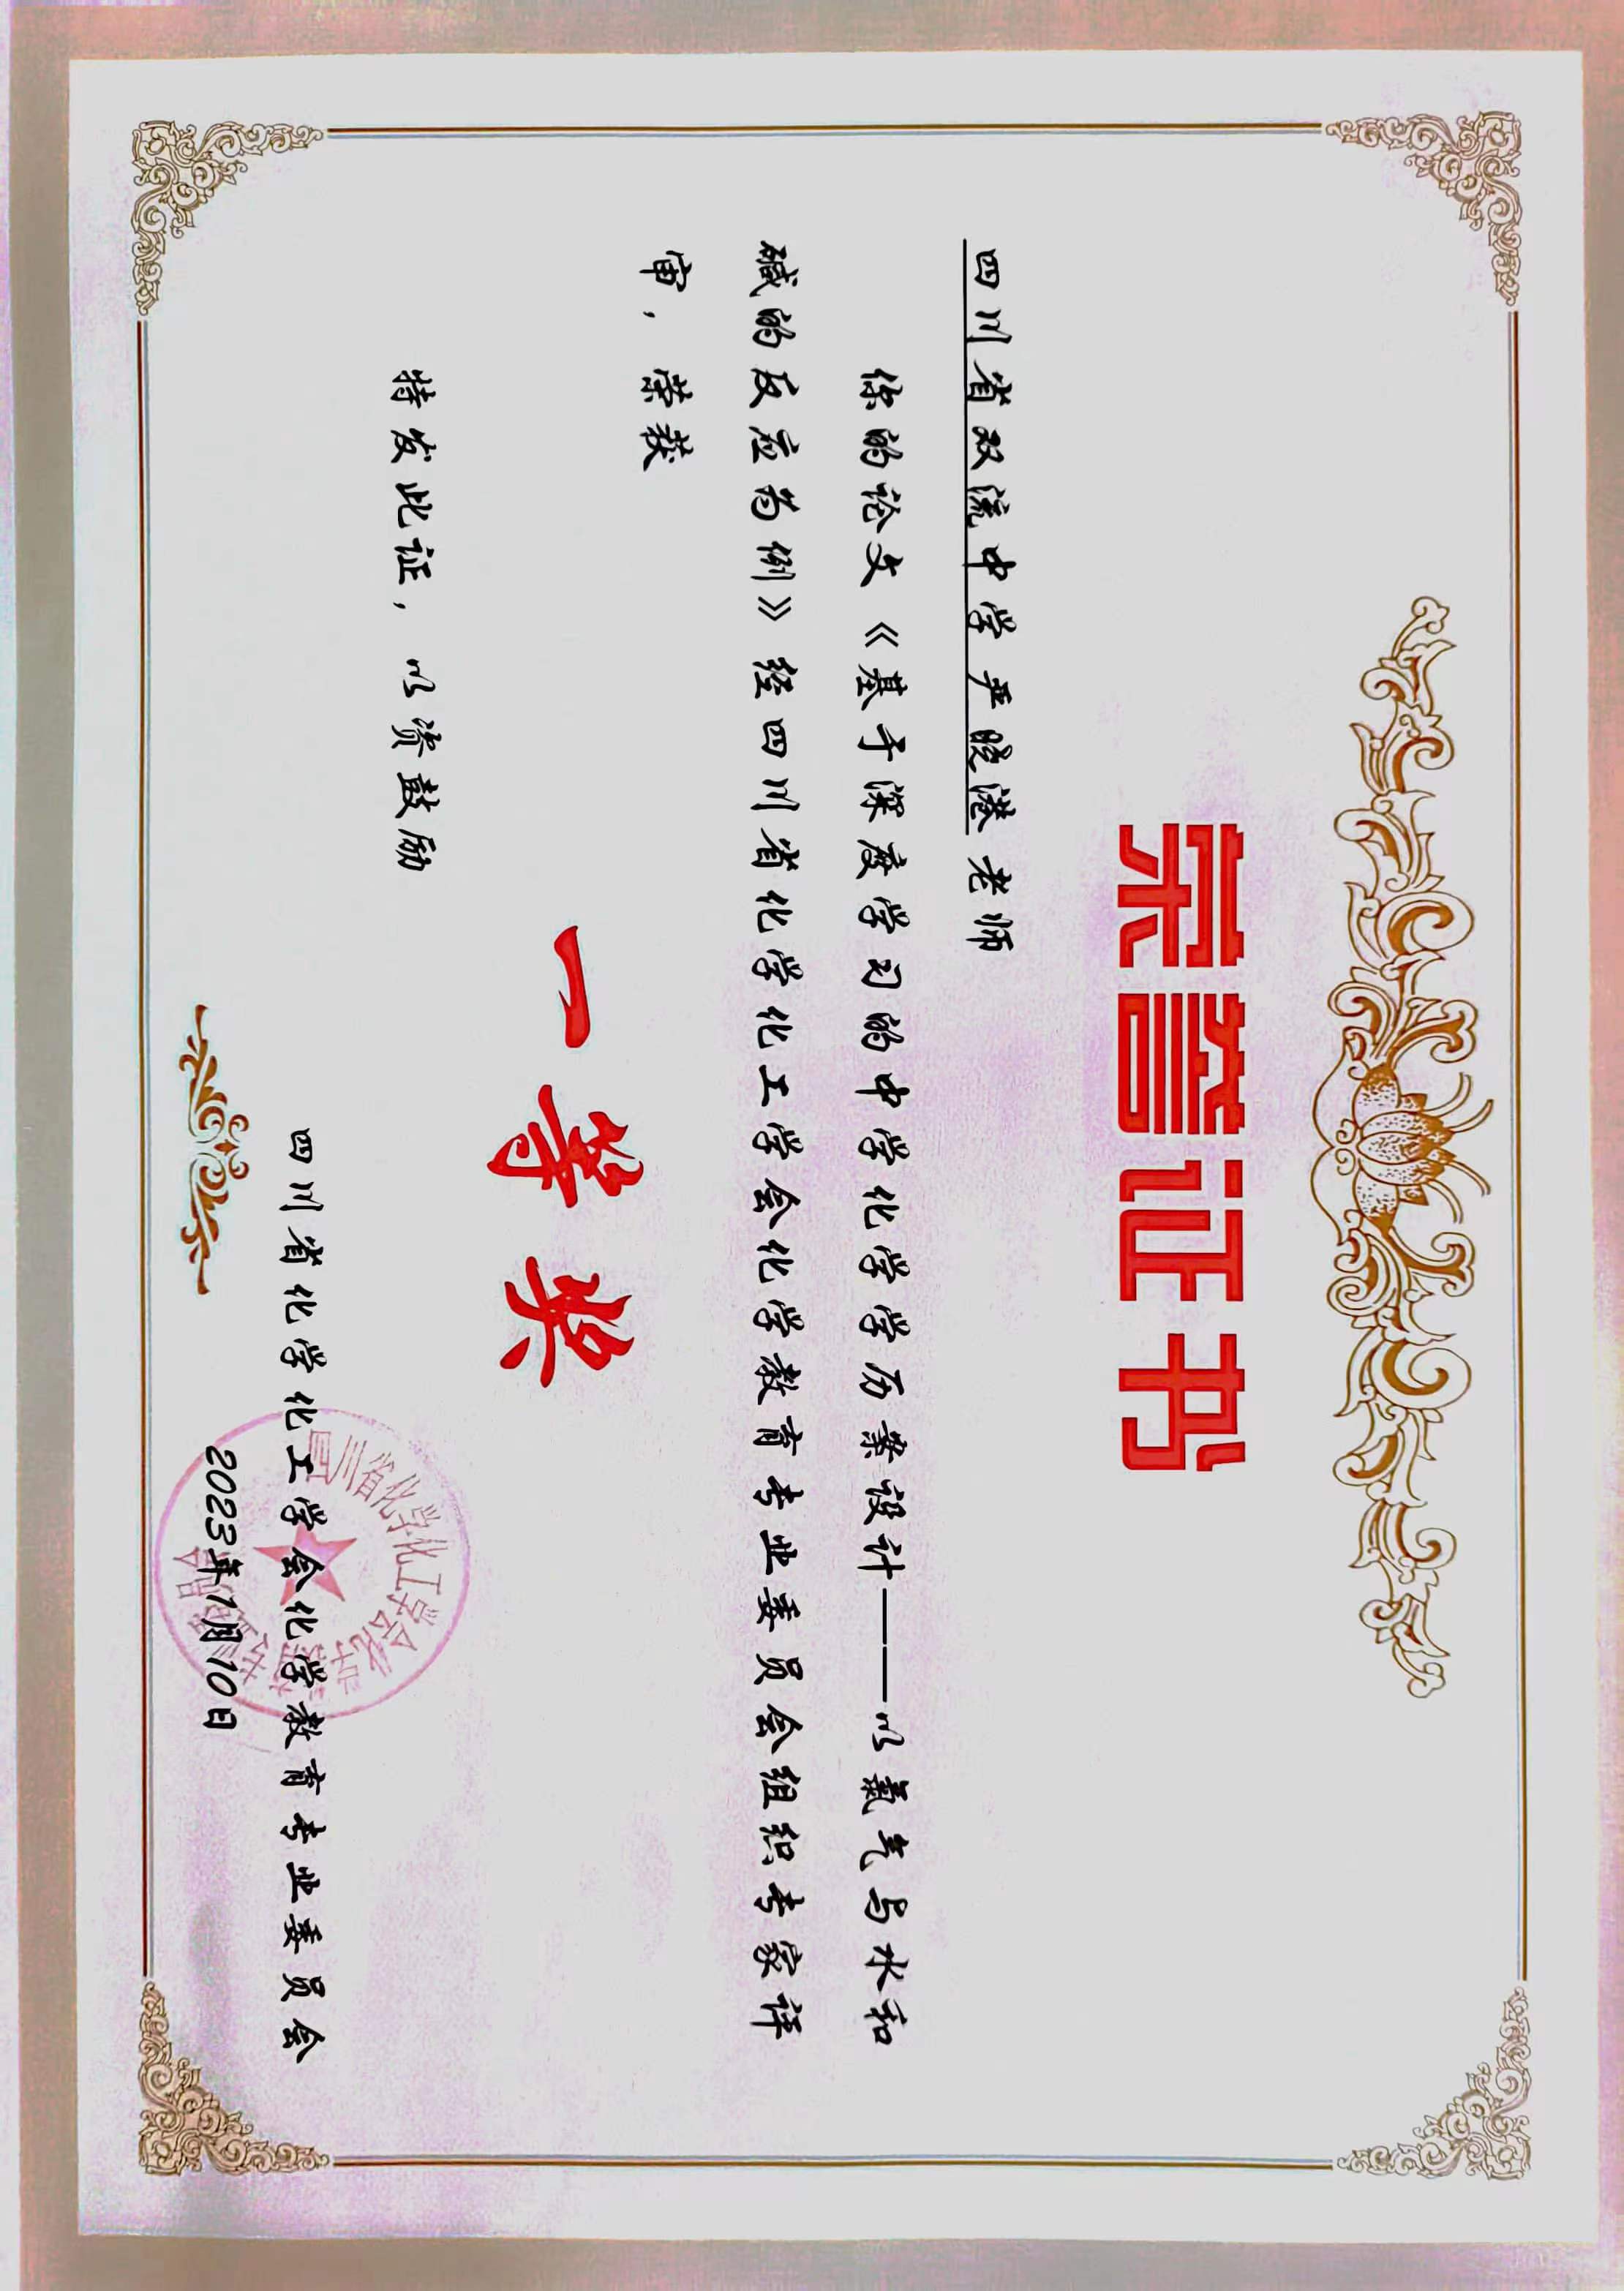 荣誉证书
四川省双流中学严晓港 老师
你的论文《基于深度学习的中学化学学历案设计——以氯气与水和
碱的反应为例》经四川省化学化工学会化学教育专业委员会组织专家评
审，荣获
一等奖
特发此证，以资鼓励
四川省化学化工学会化学教育专业委员会
2023年1月10日
四川省化学化工学会化学教育专业委员会